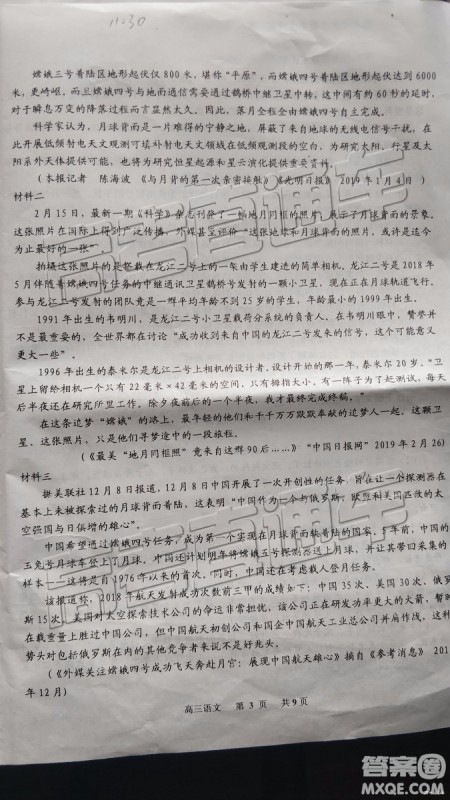 11:30
嫦娥三号着陆区地形起伏仅 800 米，堪称“平原”，而嫦娥四号着陆区地形起伏达到 6000
米，更崎岖。而且嫦娥四号与地面通信需要通过鹊桥中继卫星中转，这中间有约 60 秒的延时，
对于瞬息万变的降落过程而言显然太久。因此，落月全程全由嫦娥四号自主完成。
科学家认为，月球背面是一片难得的宁静之地，屏蔽了来自地球的无线电信号干扰，在
此开展低频射电天文观测可填补射电天文领域在低频观测段的空白，为研究太阳、行星及太
阳系外天体提供可能，也将为研究恒星起源和星云演化提供重要资料。
（本报记者 陈海波 《与月背的第一次亲密接触》《光明日报》 2019 年 1 月 4 日 ）
材料二
2 月 15 日，最新一期《科学》杂志刊登了一幅地月同框的照片，展示了月球背面的景象。
这张照片在国际上得到广泛传播，外媒甚至评价“这张地球和月球背面的照片，或许是迄今
为止最好的一张”
拍摄这张照片的是搭载在龙江二号上的一架由学生建造的简单相机。龙江二号是 2018 年
5 月伴随着嫦娥四号任务的中继通讯卫星鹊桥号发射的一颗小卫星，现在正在月球轨道飞行。
参与龙江二号发射的团队竟是一群平均年龄不到 25 岁的学生，年龄最小的 1999 年出生。
1991 年出生的韦明川，是龙江二号小卫星载荷分系统的负责人。在韦明川眼中，赞誉并
不是最重要的，全世界都在讨论“成功收到来自中国的龙江二号发来的信号，这个可能意义
更大一些”。
1996 年出生的泰米尔是龙江二号上相机的设计者，设计开始的那一年，泰米尔 20 岁。“卫
星上留给相机一个只有 22 毫米×42 毫米的空间，只有拇指大小，有一阵子为了赶测试，每天
后半夜还在研究所里工作。除夕夜前后的一个半夜，我才最终完成终稿。”
在这条追梦“嫦娥”的路上，最年轻的他们和千千万万默默奉献的追梦人一起。这颗卫
星、这张照片，只是他们寻梦途中的一段旅程。
（《最美“地月同框照”竟来自这群 90 后……》“中国日报网”2019 年 2 月 26）
材料三
据美联社 12 月 8 日报道，12 月 8 日中国开展了一次开创性的任务，旨在让一个探测器在
基本上未被探索过的月球背面着陆，这表明“中国作为一个与俄罗斯、欧盟和美国匹敌的太
空强国与日俱增的雄心”。
中国希望通过嫦娥四号任务，成为第一个实现月球背面软着陆的国家。5 年前，中国的
三兔号月球车登上了月球。中国还计划明年将嫦娥五号探测器送上月球，并让其带回采集的
样本——这将是自 1976 年以来的首次。同时，中国还在考虑载人登月任务。
该报道称，2018 年航天发射成功次数前三甲的成绩如下：中国 35 次，美国 30 次，俄罗
斯 15 次。美国太空探索技术公司的命运非常担忧，该公司正在研发功率更大的火箭，暂时
在载重量上胜过中国，但中国航天初创公司和国企中国航天工业总公司并肩作战，这种
势头对包括俄罗斯在内的其他竞争者来说不是好兆头。
（《外媒关注嫦娥四号成功飞天奔赴月宫：展现中国航天雄心》摘自《参考消息》 201
年 12 月）
高三语文 第 3 页 共 9 页
答案圈
MXQE.COM